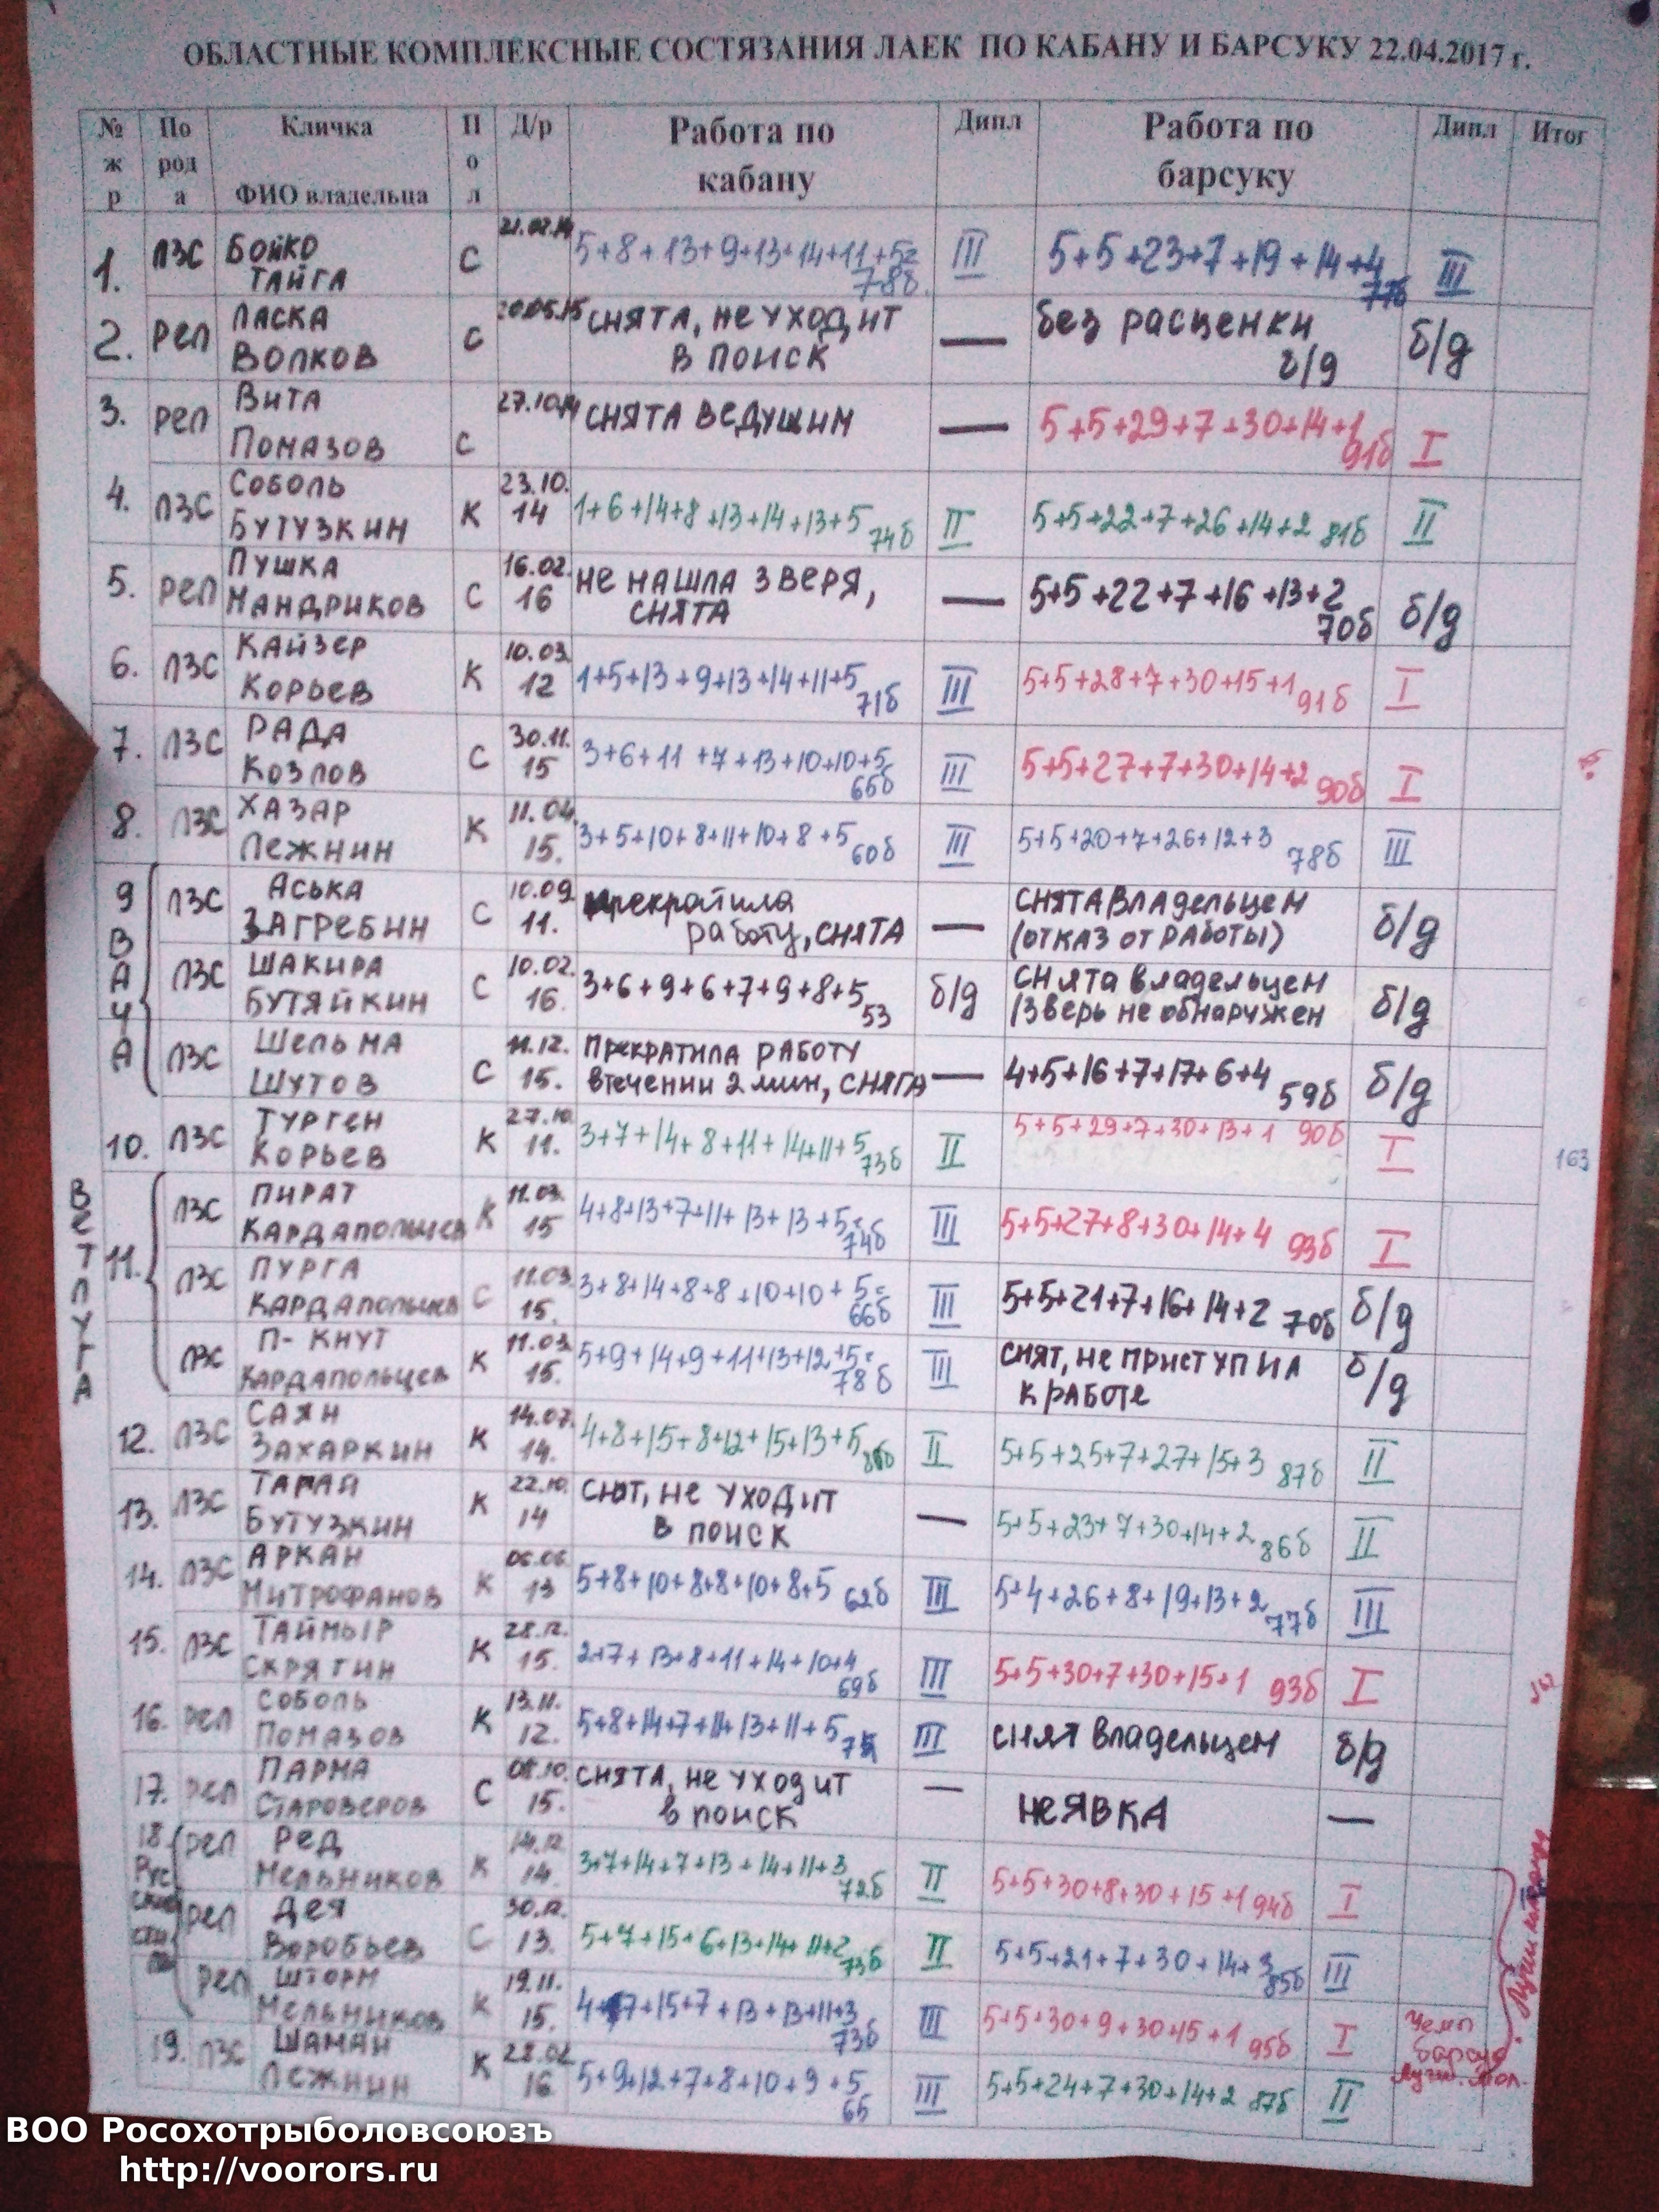 ОБЛАСТНЫЕ КОМПЛЕКСНЫЕ СОСТЯЗАНИЯ ЛАЕК ПО КАБАНУ И БАРСУКУ 22.04.2017 г.
№ По Кличка П Д/р Работа по Дипл Работа по Дипл Итог
ж род о кабану барсуку
р а ФИО владельца л
1. ЛЗС БОЙКО С 21.02.14 5+8+13+9+13+14+11+5= III 5+5+23+7+19+14+4 III
ТАЙГА 78б. 77б
2. РЕЛ ЛАСКА С 20.05.15 СНЯТА, НЕ УХОДИТ — без расценки б/д
ВОЛКОВ В ПОИСК б/д
3. РЕЛ ВИТА С 27.10.14 СНЯТА ВЕДУЩИМ — 5+5+29+7+30+14+1 I
ПОМАЗОВ 91б
4. ЛЗС СОБОЛЬ К 23.10. 1+6+14+8+13+14+13+5 II 5+5+22+7+26+14+2 81б II
БУТУЗКИН 14 74б
5. РЕЛ ПУШКА С 16.02. НЕ НАШЛА ЗВЕРЯ, — 5+5+22+7+16+13+2 б/д
МАНДРИКОВ 16 СНЯТА 70б
6. ЛЗС КАЙЗЕР К 10.03. 1+5+13+9+13+14+11+5 III 5+5+28+7+30+15+1 I
КОРЬЕВ 12 71б 91б
7. ЛЗС РАДА С 30.11. 3+6+11+7+13+10+10+5 III 5+5+27+7+30+14+2 I
КОЗЛОВ 15 65б 90б
8. ЛЗС ХАЗАР К 11.04. 3+5+10+8+11+10+8+5 III 5+5+20+7+26+12+3 III
ЛЕЖНИН 15. 60б 78б
9 ВАЧА
ЛЗС АСЬКА С 10.09. прекратила — СНЯТА ВЛАДЕЛЬЦЕМ б/д
ЗАГРЕБИН 11. работу, СНЯТА (ОТКАЗ ОТ РАБОТЫ)
ЛЗС ШАКИРА С 10.02. 3+6+9+6+7+9+8+5 б/д СНЯТА владельцем б/д
БУТЯЙКИН 16. 53 /Зверь не обнаружен
ЛЗС ШЕЛЬМА С 11.12. ПРЕКРАТИЛА РАБОТУ — 4+5+16+7+17+6+4 б/д
ШУТОВ 15. втечении 2 мин, СНЯТА 59б
10. ЛЗС ТУРГЕН К 27.10. 3+7+14+8+11+14+11+5 II 5+5+29+7+30+13+1 90б I 163
КОРЬЕВ 11. 73б
ВЕТЛУГА
11. ЛЗС ПИРАТ К 11.03. 4+8+13+7+11+13+13+5= III 5+5+27+8+30+14+4 93б I
КАРДАПОЛЬЦЕВ 15 74б
ЛЗС ПУРГА С 11.03. 3+8+14+8+8+10+10+5= III 5+5+21+7+16+14+2 70б б/д
КАРДАПОЛЬЦЕВ 15. 66б
ЛЗС П-КНУТ К 11.03. 5+9+14+9+11+13+12+5= III СНЯТ, НЕ ПРИСТУПИЛ б/д
КАРДАПОЛЬЦЕВ 15. 78б К РАБОТЕ
12. ЛЗС САЯН К 14.07. 4+8+15+8+12+15+13+5 II 5+5+25+7+27+15+3 87б II
ЗАХАРКИН 14.
13. ЛЗС К 22.10. СНЯТ, НЕ УХОДИТ — 5+5+23+7+30+14+2 86б II
БУТУЗКИН 14 В ПОИСК
14. ЛЗС АРКАН К 06.06. 5+8+10+8+8+10+8+5 62б III 5+4+26+8+19+13+2 77б III
МИТРОФАНОВ 13
15. ЛЗС ТАЙМЫР К 28.12. 2+7+13+8+11+14+10+4 III 5+5+30+7+30+15+1 93б I
СКРЯГИН 15. 69б
16. РЕЛ СОБОЛЬ К 13.11. 5+8+14+7+11+13+11+5 III СНЯТ Владельцем б/д
ПОМАЗОВ 12.
17. РЕЛ ПАРМА С 08.10. СНЯТА, НЕ УХОДИТ — НЕЯВКА —
СТАРОВЕРОВ 15. В ПОИСК
18. РЕЛ РЕД К 14.12. 3+7+14+7+13+14+11+3 II 5+5+30+8+30+15+1 94б I
МЕЛЬНИКОВ 14. 72б
РЕЛ ДЕЯ С 30.12. 5+7+15+6+13+14+11+2 II 5+5+21+7+30+14+3 III
ВОРОБЬЕВ 13. 73б 85б
РЕЛ ШТОРМ К 19.11. 4+7+15+7+13+13+11+3 III 5+5+30+9+30+15+1 95б I
МЕЛЬНИКОВ 15. 73б
Чемп
барсук
19. ЛЗС ШАМАН К 28.02. 5+9+12+7+8+10+9+5 III 5+5+24+7+30+14+2 87б II
ЛЕЖНИН 16 65
Лучш. команда
ВОО Росохотрыболовсоюзъ
http://voorors.ru